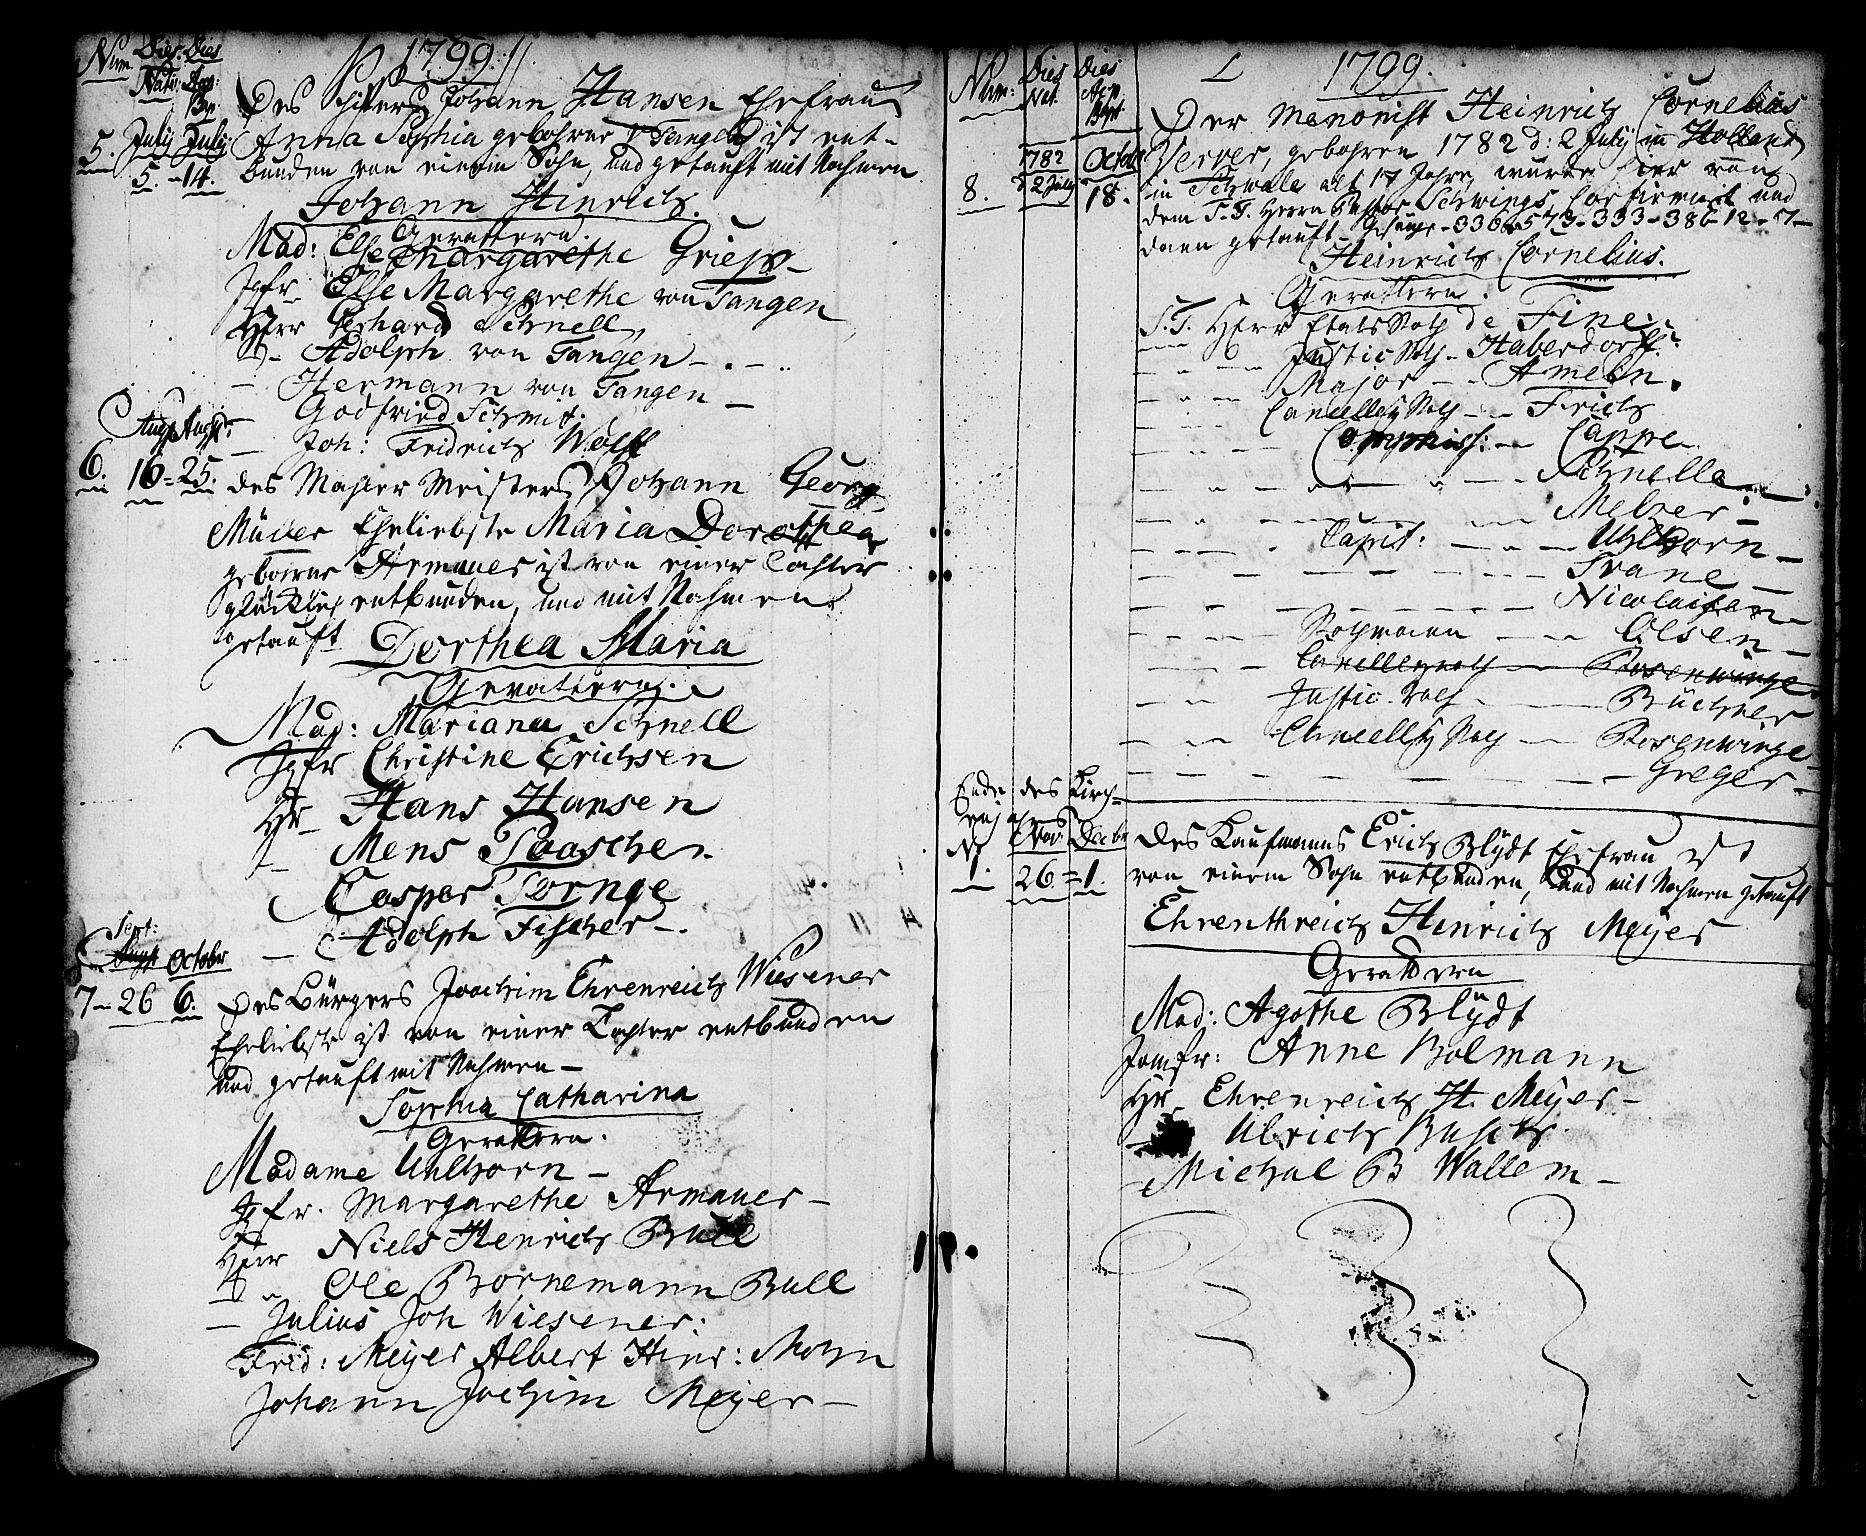 Num. Dies Nativ: Dies Bap:
1799.
Des Schiffers Johann Hansen Ehefrau
5. July 5. July 14.
Anna Sophia gebohrne v Tangen ist ent-
bunden von einem Sohn, und getauft mit Nahmen
Johann Hinrich.
Gevattern.
Mad: Else Margarethe Griep
Jgfr Else Margarethe von Tangen
Herr Gerhard Schnell,
— Adolph von Tangen —
— Hermann von Tangen —
— Godfried Schmit.
— Joh: Fridrich Wolff
Augst Augst:
6. 16 = 25. des Mahler Meisters Johann Georg
Müller Eheliebste Maria Dorothea
gebohrne Armauer ist von einer Tochter
glücklich entbunden, und mit Nahmen
getauft Dorthea Maria
Gevattern.
Mad: Mariana Schnell
Jgfr Christine Erichsen
Hr Hans Hansen
— Mens Paasche
Casper Tornøe
— Adolph Fischer —
Sept:
Augst October
7 — 26 6. Des Bürgers Joachim Ehrenreich Wiesener
Eheliebste ist von einer Tochter entbunden
und getauft mit Nahmen —
Sophia Catharina
Gevattern.
Madame Uhlhorn —
Jgfr. Margarethe Armauer —
Herr Niels Henrich Bull
— Ole Bornemann Bull
— Julius Joh Wiesener.
Fred: Meyer Albert Hinr: Mohn
Johann Jochim Meyer —
Num: Dies Nat. Dies Bapt
1799.
Der Menonist Heinrich Cornelius
8. 1782 d 2 July October 18.
Verver, gebohren 1782 d: 2 July in Holland
in Schwale alt 17 Jahre, wurde hier von
dem S. T. Herrn Pastor Schwings Confirmirt und
dann getauft Gesänge - 336 - 573 - 333 - 386 - 12 - 7 -
Heinrich Cornelius.
Gevattern.
S. T. Herr Etats Rath de Fine.
Justic Rath - Haberdorff:
Major — Ameln.
Cancelley Rath — Frich
Commiss: — Cappe
Schnelle
Melzer —
Capit: — Uhlhorn —
Frane —
Nicolaisen
Rathmann — Olsen —
Cancelleyrath — Rosenwinge
Justic Rath — Büchner
Cancelley Rath — Rosenwinge —
Greger —
Ende des Kirch-
enjahres
N. Nov: Decbr
1. 26 = 1.
Des Kaufmanns Erich Blÿdt Ehefrau ist
von einem Sohn entbunden, und mit Nahmen getauft
Ehrenthreich Hinrich Meyer
Gevattern
Mad: Agathe Blÿdt
Jomfr: Anne Bolmann
Hr Ehrenreich H. Meyer —
Ulrich Busch.
Michael B Wallem —